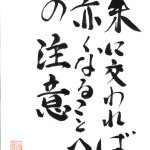 朱に交われば
赤くなることへ
の注意